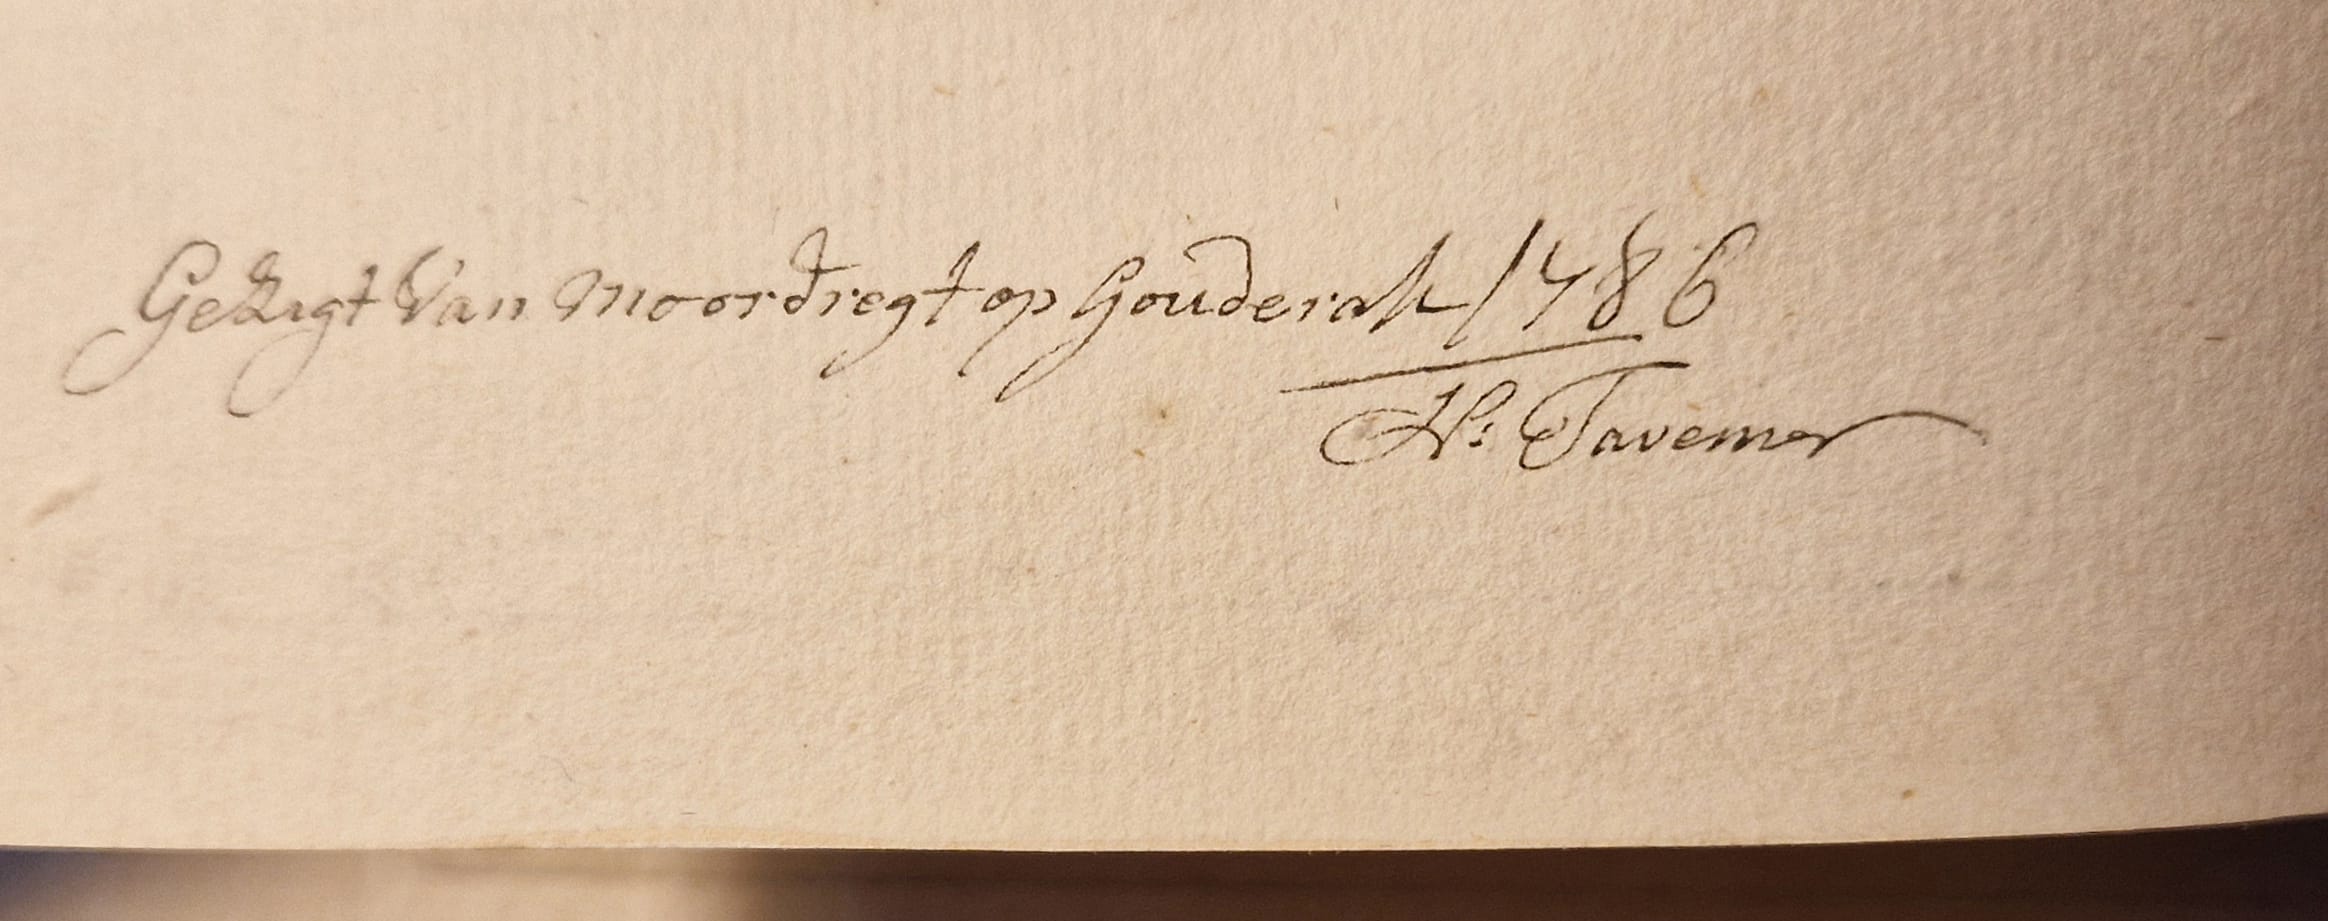 Gezigt Van Moordregt op Gouderak 1786
Hs: Taverner